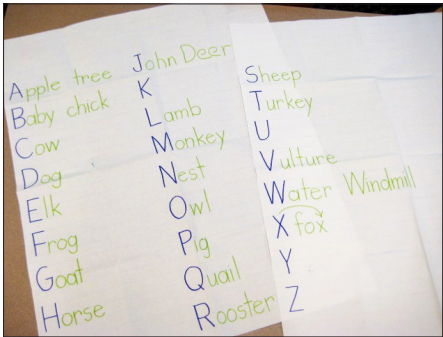 Apple tree
Baby chick
Cow
Dog
Elk
Frog
Goat
Horse
John Deer
K
Lamb
Monkey
Nest
Owl
Pig
Quail
Rooster
Sheep
Turkey
U
Vulture
Water Windmill
X fox
Y
Z